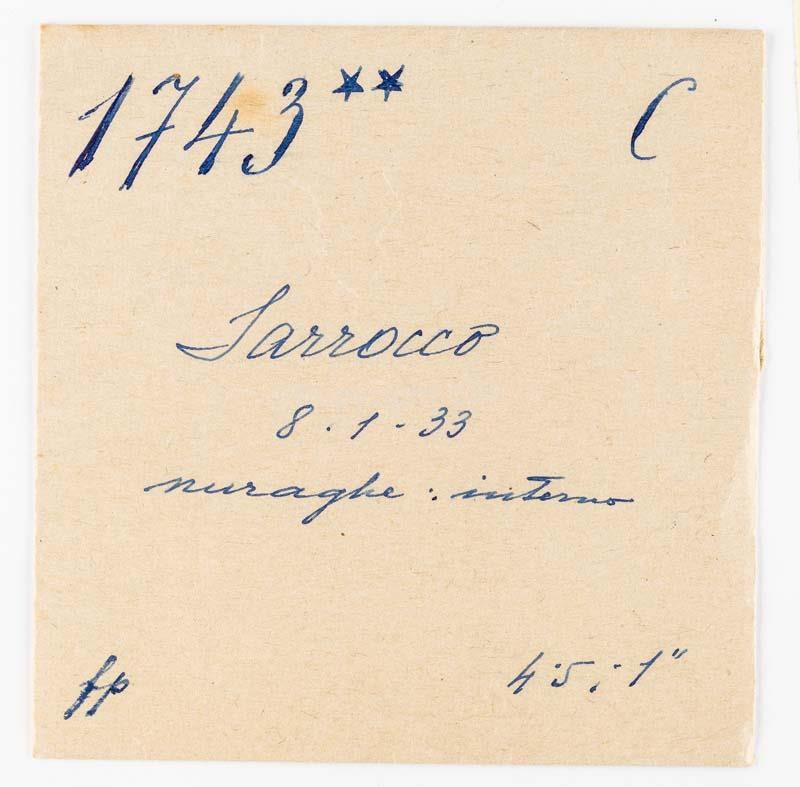 1743** C
Sarrocco
8.1-33
nuraghe: interno
fp 4.5; 1"